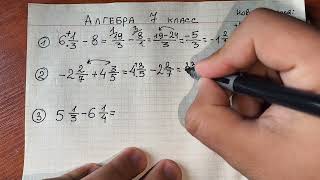 Алгебра 7 класс
① 6 1/3 - 8 = 19/3 - 8/1 = (19-24)/3 = -5/3 = -1
② -2 2/7 + 4 3/5 = 4 3/5 - 2 2/7 =
③ 5 1/3 - 6 1/4 =